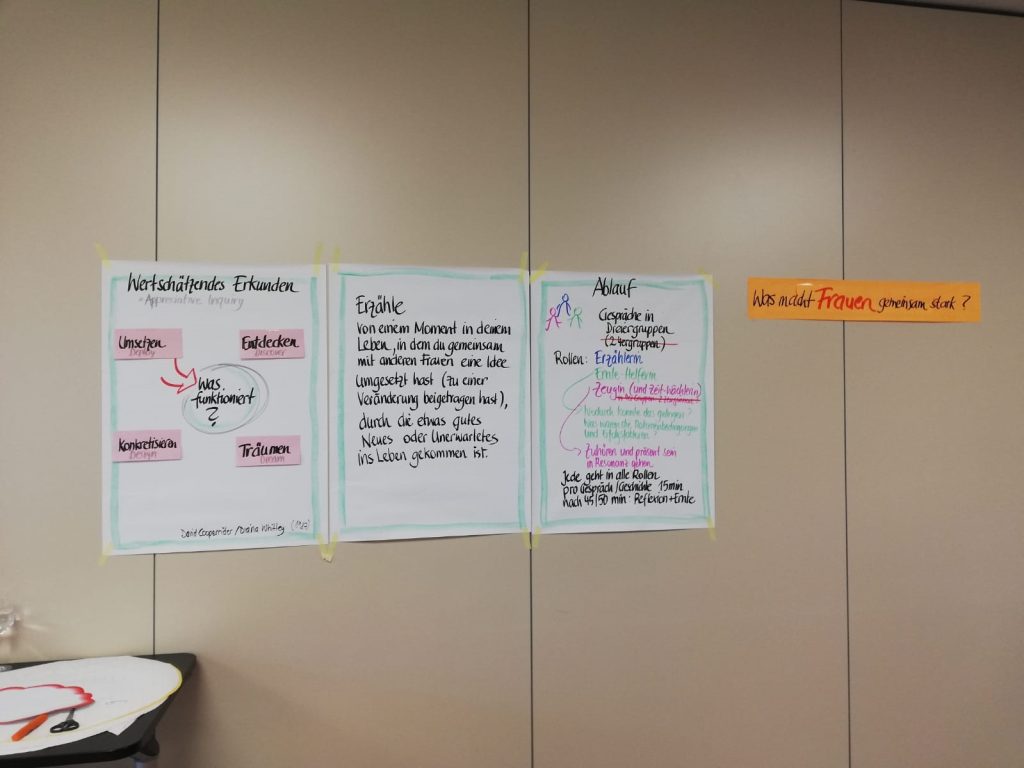 Wertschätzendes Erkunden
- Appreciative Inquiry
Umsetzen
Deploy
Entdecken
Discover
was
funktioniert
?
Konkretisieren
Design
Träumen
Dream
David Cooperrider / Diana Whitley
Erzähle
von einem Moment in deinem
Leben, in dem du gemeinsam
mit anderen Frauen eine Idee
Umgesetzt hast (zu einer
Veränderung beigetragen hast),
durch die etwas gutes
Neues oder Unerwartetes
ins Leben gekommen ist.
Ablauf
Gespräche in
Dreiergruppen
(2 4ergruppen)
Rollen: Erzählerin
Ernte Helferin
Zeugin (und Zeit-Wächterin)
Wodurch konnte das gelingen?
Was waren die Rahmenbedingungen
und Erfolgsfaktoren?
Zuhören und präsent sein
in Resonanz gehen
Jede geht in alle Rollen
pro Gespräch/Geschichte 15min
nach 45/50 min: Reflexion + Ernte
Was macht Frauen gemeinsam stark?